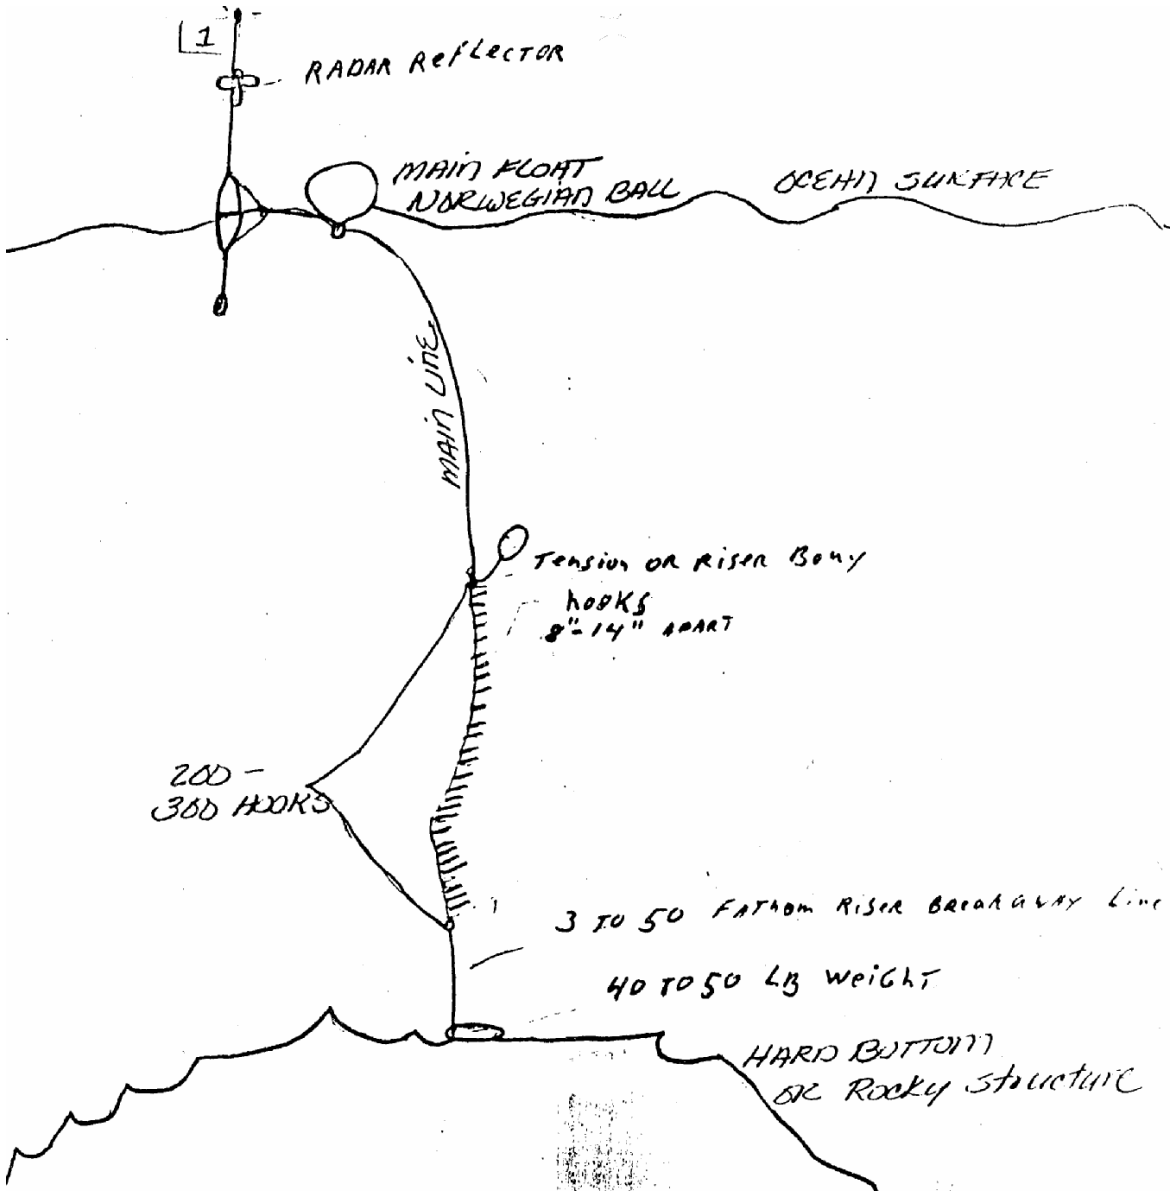 1
RADAR REFLECTOR
MAIN FLOAT
NORWEGIAN BALL
OCEAN SURFACE
MAIN LINE
Tension OR Riser Bouy
hooKs
8"-14" APART
200 -
300 HOOKS
3 TO 50 FAThom RiSer BreaKaway Line
40 TO 50 LB WeiGhT
HARD BOTTOM
OR Rocky Structure